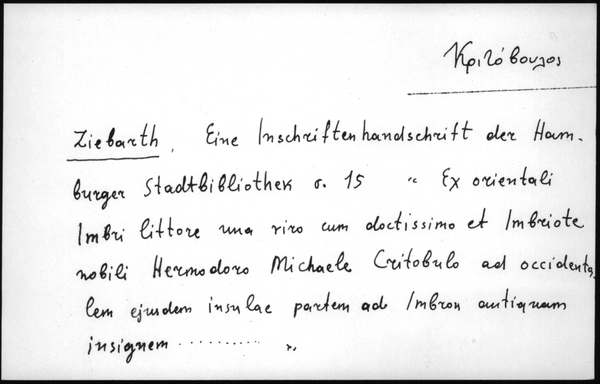 Κριτόβουλος
Ziebarth, Eine Inschriftenhandschrift der Ham-
burger Stadtbibliothek σ. 15 " Ex orientali
Imbri littore una viro cum doctissimo et Imbriote
nobili Hermodoro Michaele Critobulo ad occidenta-
lem ejusdem insulae partem ad Imbron antiquam
insignem .......... "